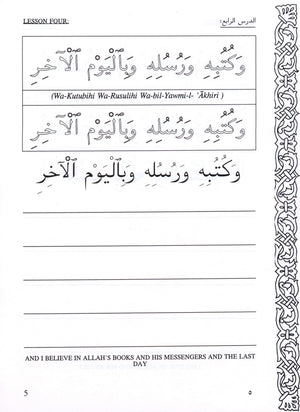 LESSON FOUR:
الدرس الرابع:
وَكُتُبِهِ وَرُسُلِهِ وَبِالْيَوْمِ الْآخِرِ
(Wa-Kutubihi Wa-Rusulihi Wa-bil-Yawmi-l- 'Ākhiri )
وَكُتُبِهِ وَرُسُلِهِ وَبِالْيَوْمِ الْآخِرِ
وَكُتُبِهِ وَرُسُلِهِ وَبِالْيَوْمِ الْآخِرِ
AND I BELIEVE IN ALLAH'S BOOKS AND HIS MESSENGERS AND THE LAST
DAY
5
٥